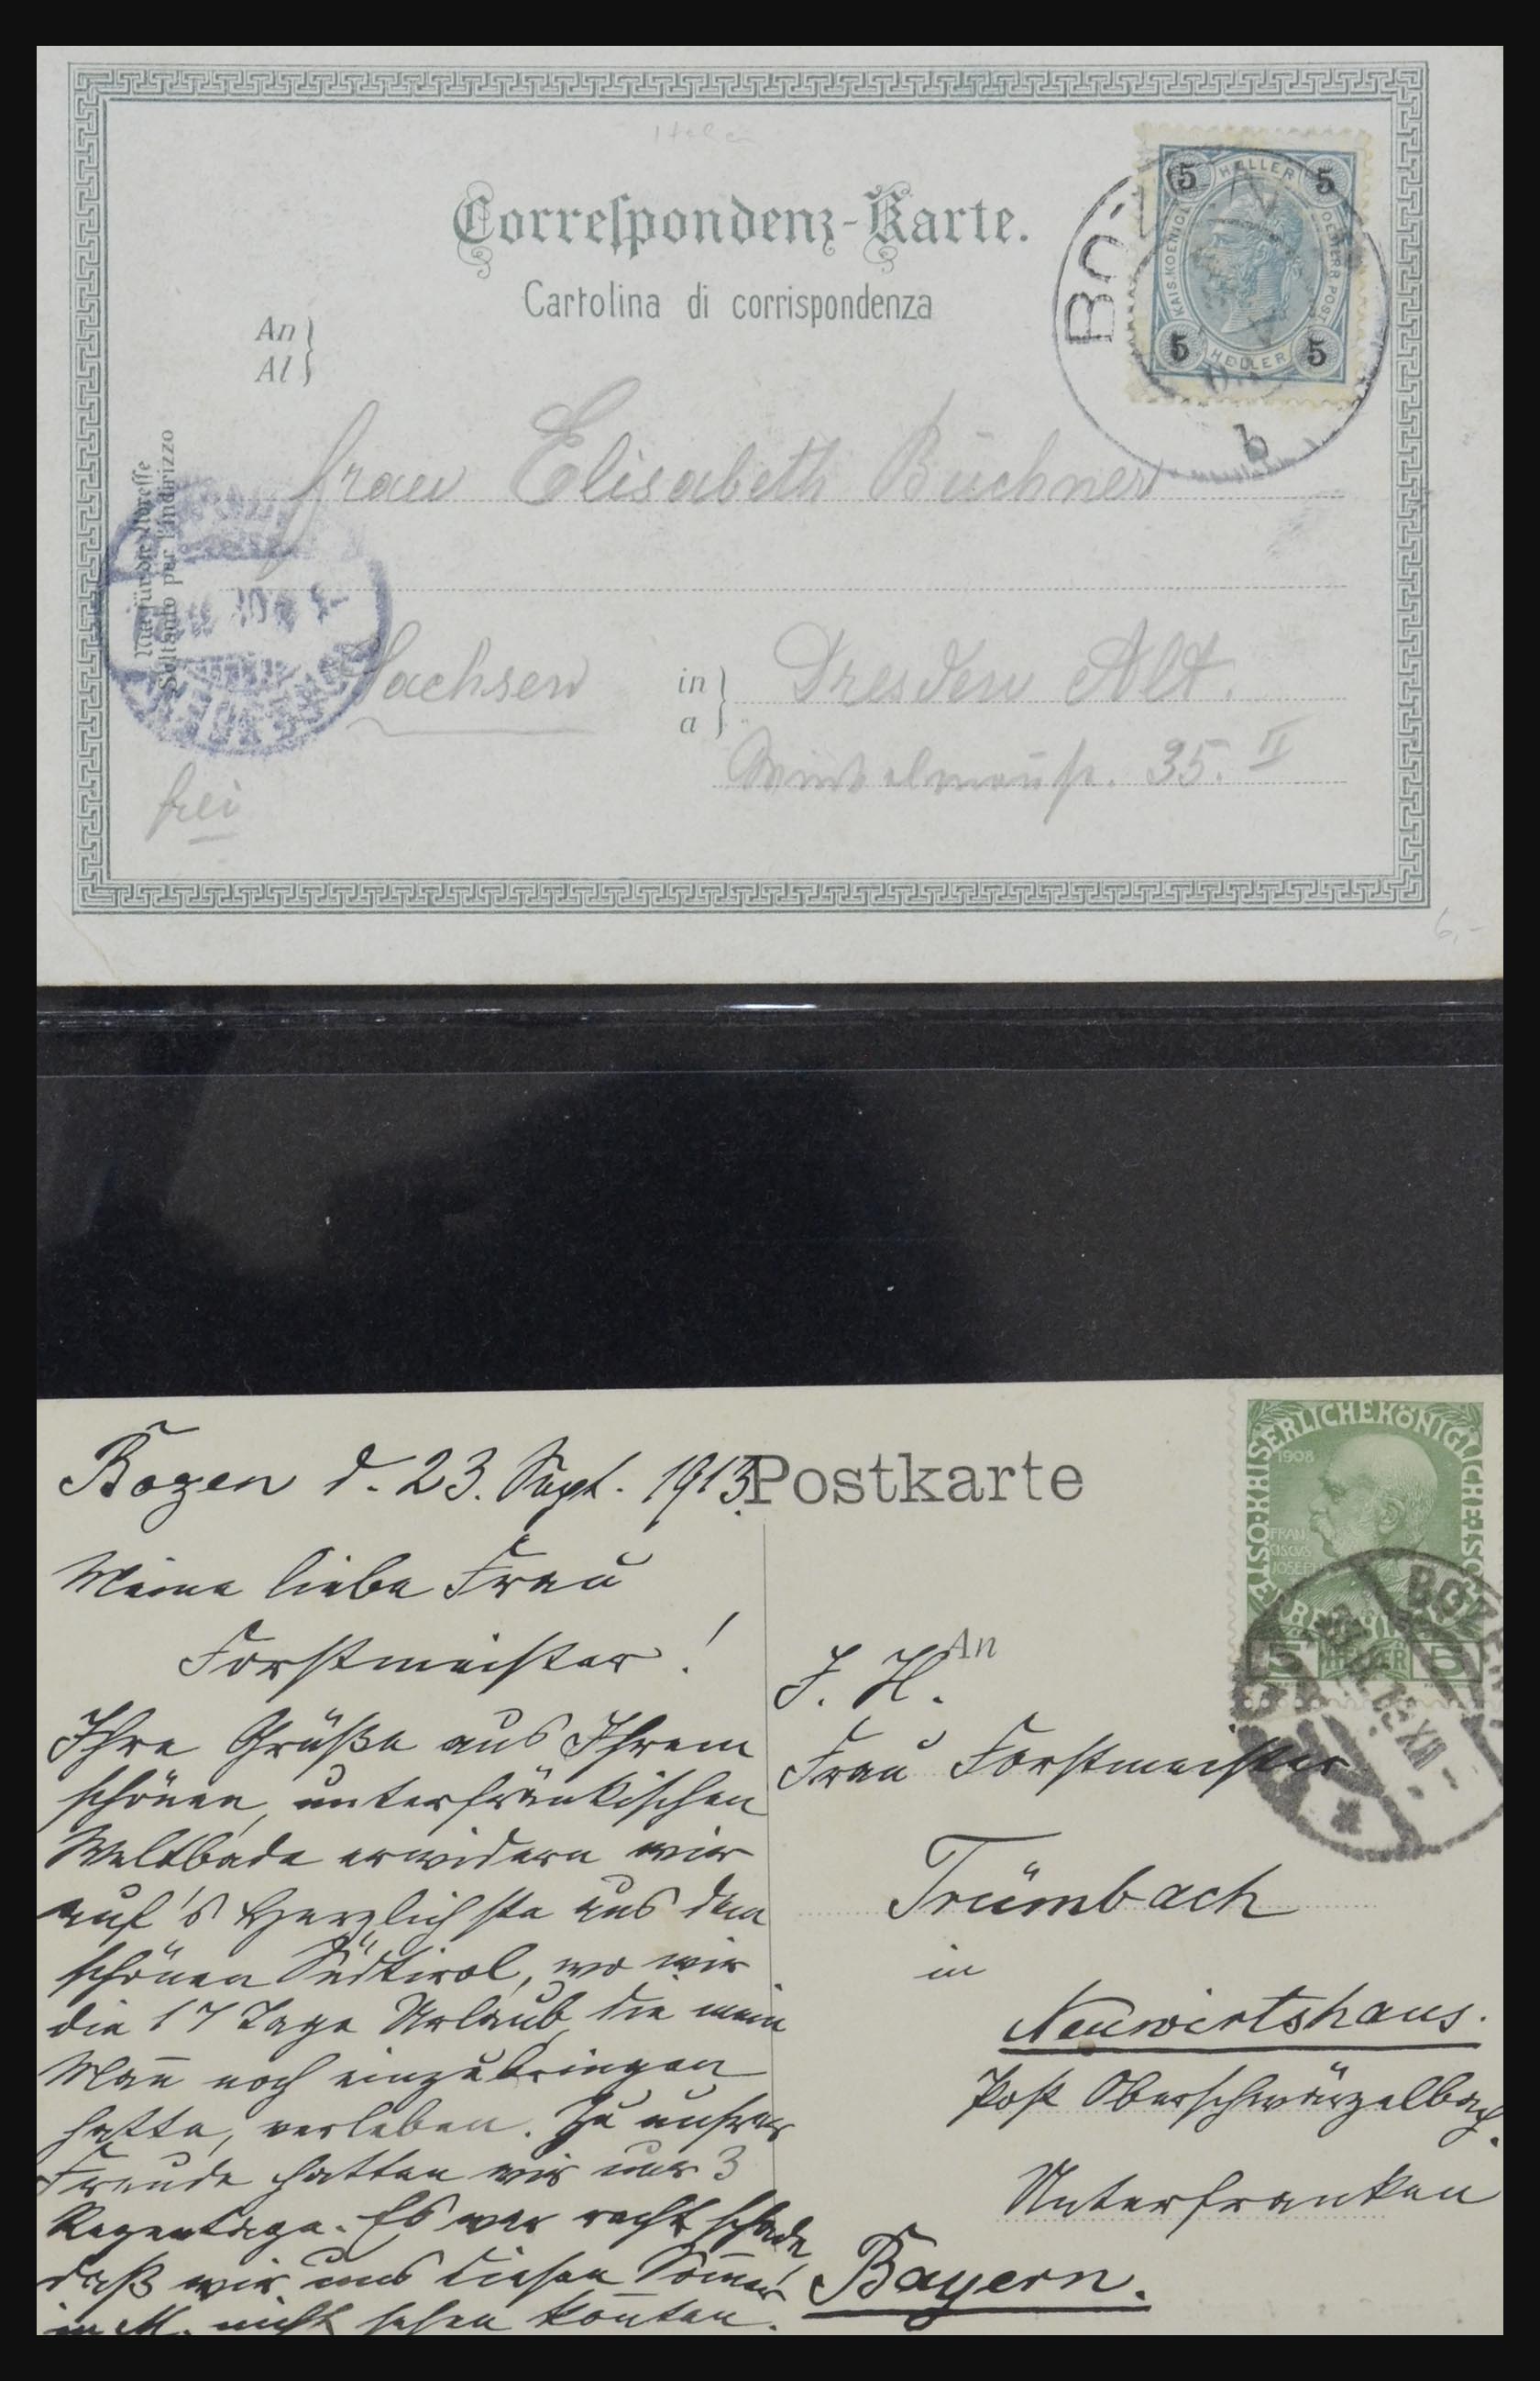 Correspondenz-Karte.
Cartolina di corrispondenza
An
Al
5 HELLER 5
KAIS. KOENIGL. OESTERR. POST
5 HELLER 5
b
Nur für die Adresse
Soltanto per l'indirizzo
Frau Elisabeth Büchner
Sachsen
in
a
Dresden Alt.
35. II
frei
6,-
Bozen d. 23. Sept. 1913.
Postkarte
KAISERLICHE KÖNIGLICHE
1908
FRAN
CISCVS
JOSEPH
5 HELLER 5
BOZEN
Meine liebe Frau
Forstmeister!
Ihre Grüße aus Ihrem
schönen, unterfränkischen
Weltbade erwidern wir
auf's Herzlichste aus dem
schönen Südtirol, wo wir
die 17 Tage Urlaub, die mein
Mann noch einzubringen
hatte, verleben. Zu unsrer
Freude hatten wir nur 3
Regentage. Es war recht schade,
daß wir uns diesen Sommer
in M. nicht sehen konnten.
An
I. H.
Frau Forstmeister
Trümbach
in
Neuwirtshaus.
Post Oberschwärzelbach.
Unterfranken
Bayern.